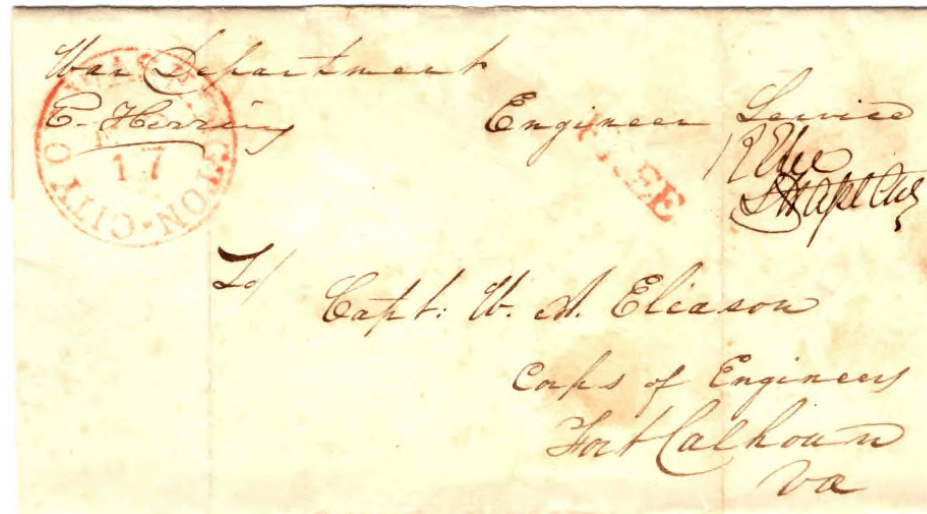 War Department
E. Herring
WASHINGTON-CITY
17
Engineer Service
FREE
R E Lee
To/
Capt: W. A. Eliason
Corps of Engineers
Fort Calhoun
Va